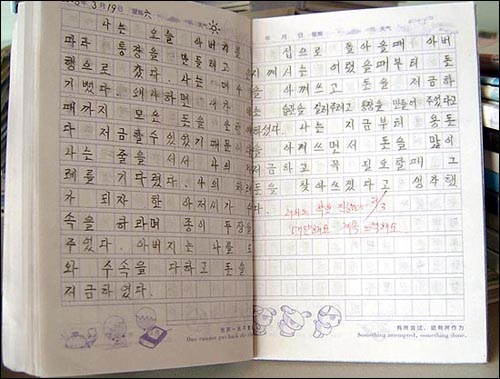 3月19日 星期六 天气
나는 오늘 아버지를
따라 통장을 만들려고
행으로 갔다. 나는 매우
기뻤다. 왜냐하면 내가
때까지 모은 돈을
다 저금할수있었기 때문이
나는 줄을 서서 나의
례를 기다렸다. 나의 차례
가 되자 한 아저씨가 수
속을 하라며 종이 두장을
주었다. 아버지는 나를 도
와 수속을 다하고 돈을
저금하였다.
年 月 日 星期 天气
집으로 돌아올때 아버
지께서는 어렸을때부터 돈
을 아껴쓰고 돈을 저금하
습관을 길러주려고 통장을 만들어 주었다고
하셨다. 나는 지금부터 용돈
을 아껴쓰면서 돈을 많이
저금하고 꼭 필요할때 그
돈을 찾아쓰겠다고 생각했
다.
계속 노력해요
有所尝试，就有所作为
Something attempted, something done.